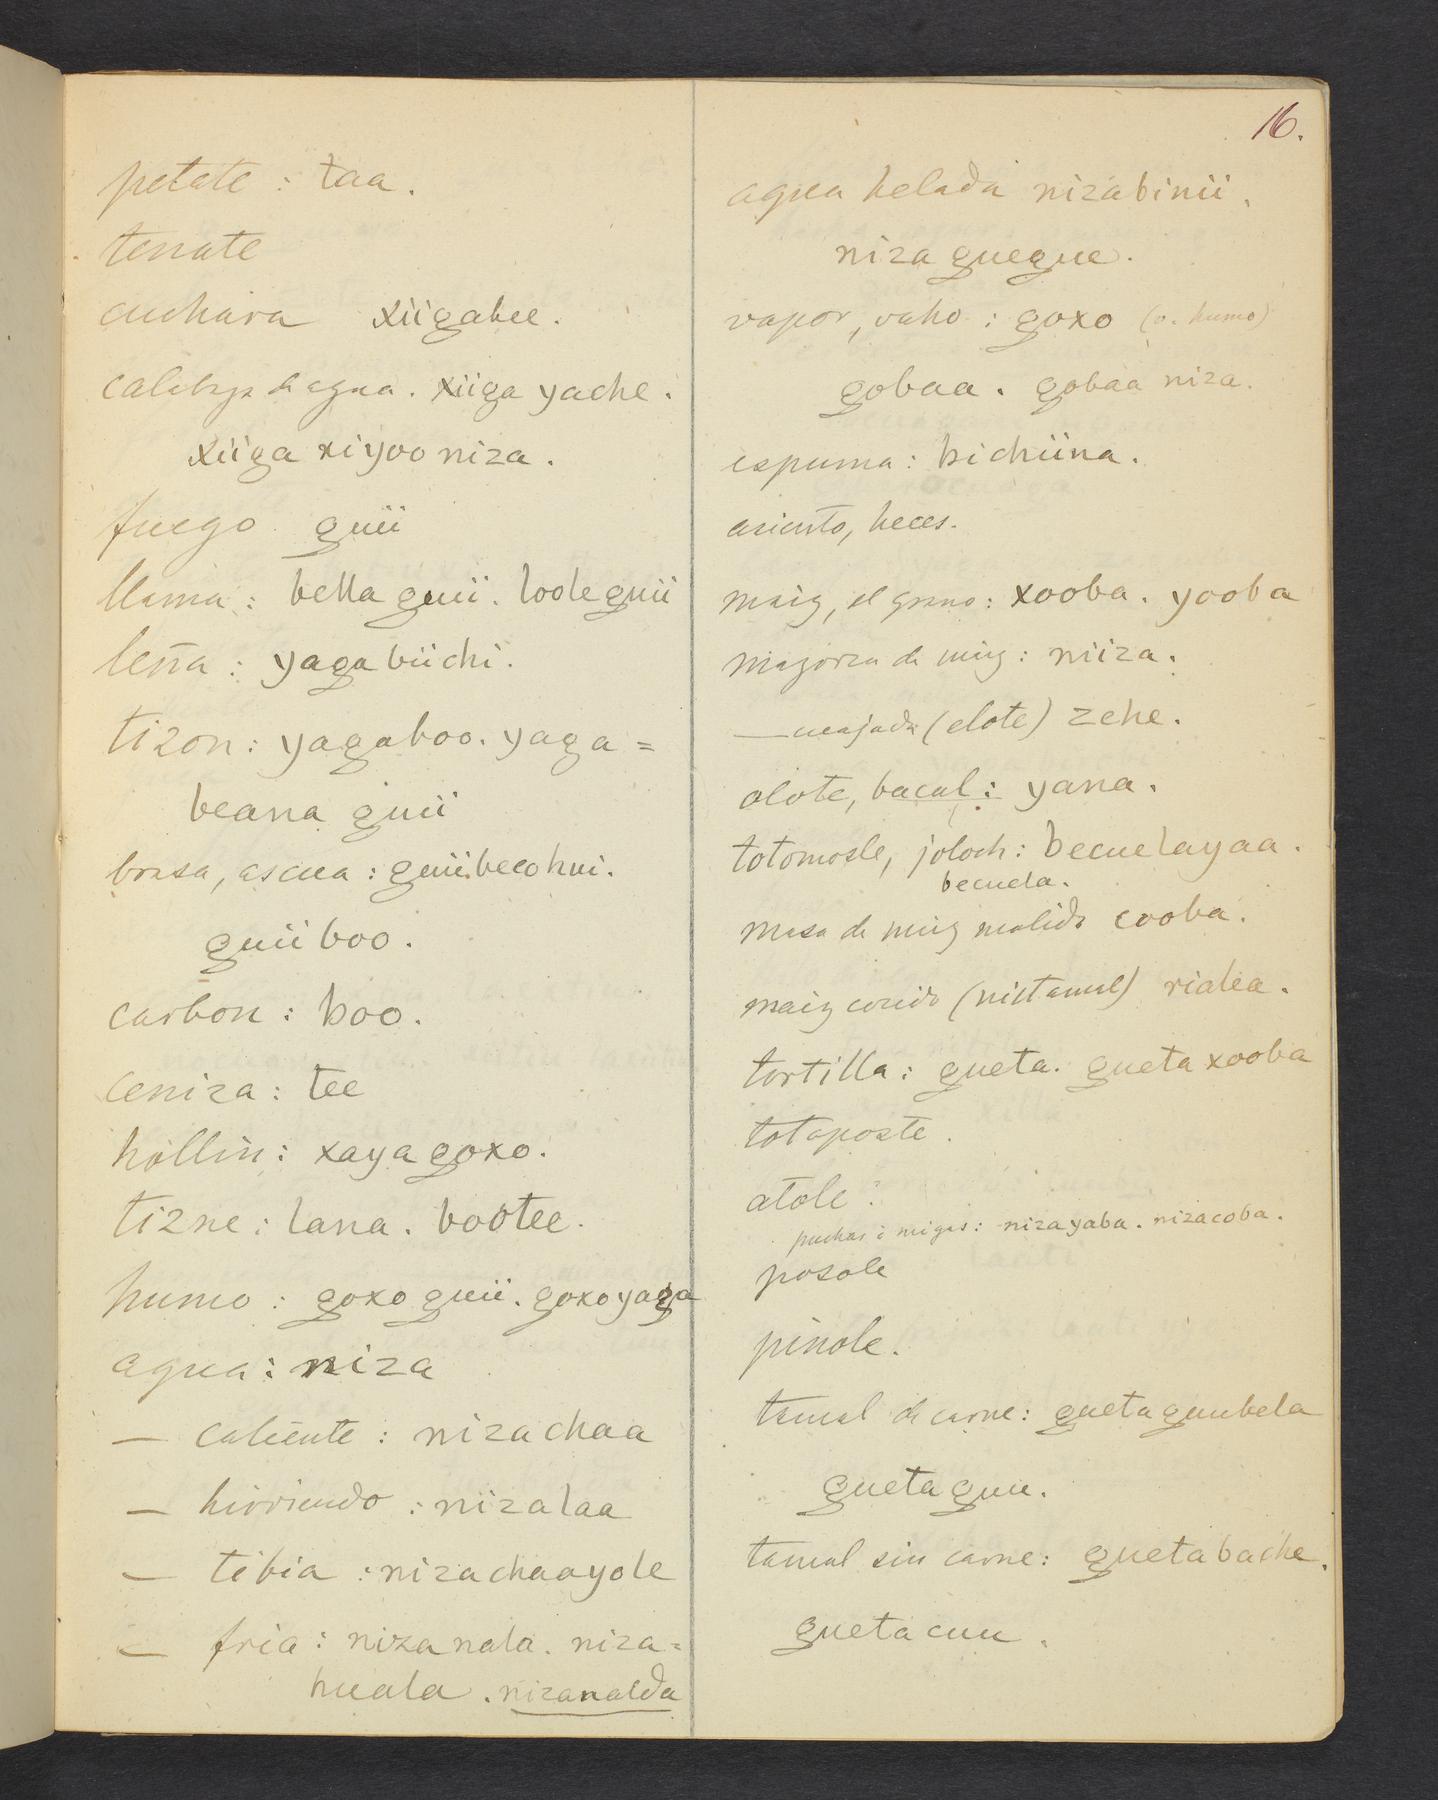 16.
petate : taa.
tenate
cuchara xiigabee.
calabaza de agua. xiiga yache.
xiiga xiyoo niza.
fuego guii
llama : bella guii. loole guii
leña : yaga biichi.
tizon : yagaboo. yaga =
beana guii
brasa, ascua : guii becohui.
guii boo.
carbon : boo.
ceniza : tee
hollin : xaya goxo.
tizne : lana. bootee.
humo : goxo guii. goxo yaga
agua : niza
— caliente : niza chaa
— hirviendo : nizalaa
— tibia : nizachaayole
— fria : niza nala. niza=
huala. nizanalda
agua helada nizabinii.
niza guegue.
vapor, vaho : goxo (v. humo)
gobaa. gobaa niza.
espuma : bichiina.
asiento, heces.
maiz, el grano : xooba. yooba
mazorca de maiz : niiza.
— cuajada (elote) zehe.
olote, bacal : yana.
totomosle, joloch : becuelayaa.
becuela.
masa de maiz molido cooba.
maiz cocido (nictamal) rialea.
tortilla : gueta. gueta xooba
totoposte.
atole :
puchas ó migas : nizayaba. nizacoba.
posole
pinole.
tamal de carne : gueta guubela
gueta guu.
tamal sin carne : guetabache.
gueta cuu.